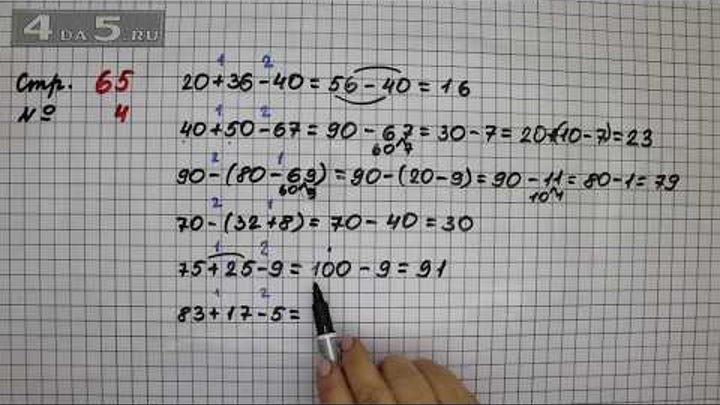 4 DA 5.RU
Стр. 65
№ 4
1 2
20+36-40=56-40=16
1 2
40+50-67=90-67=30-7=20+(10-7)=23
60 7
2 1
90-(80-69)=90-(20-9)=90-11=80-1=79
60 9 10 1
2 1
70-(32+8)=70-40=30
1 2
75+25-9=100-9=91
1 2
83+17-5=